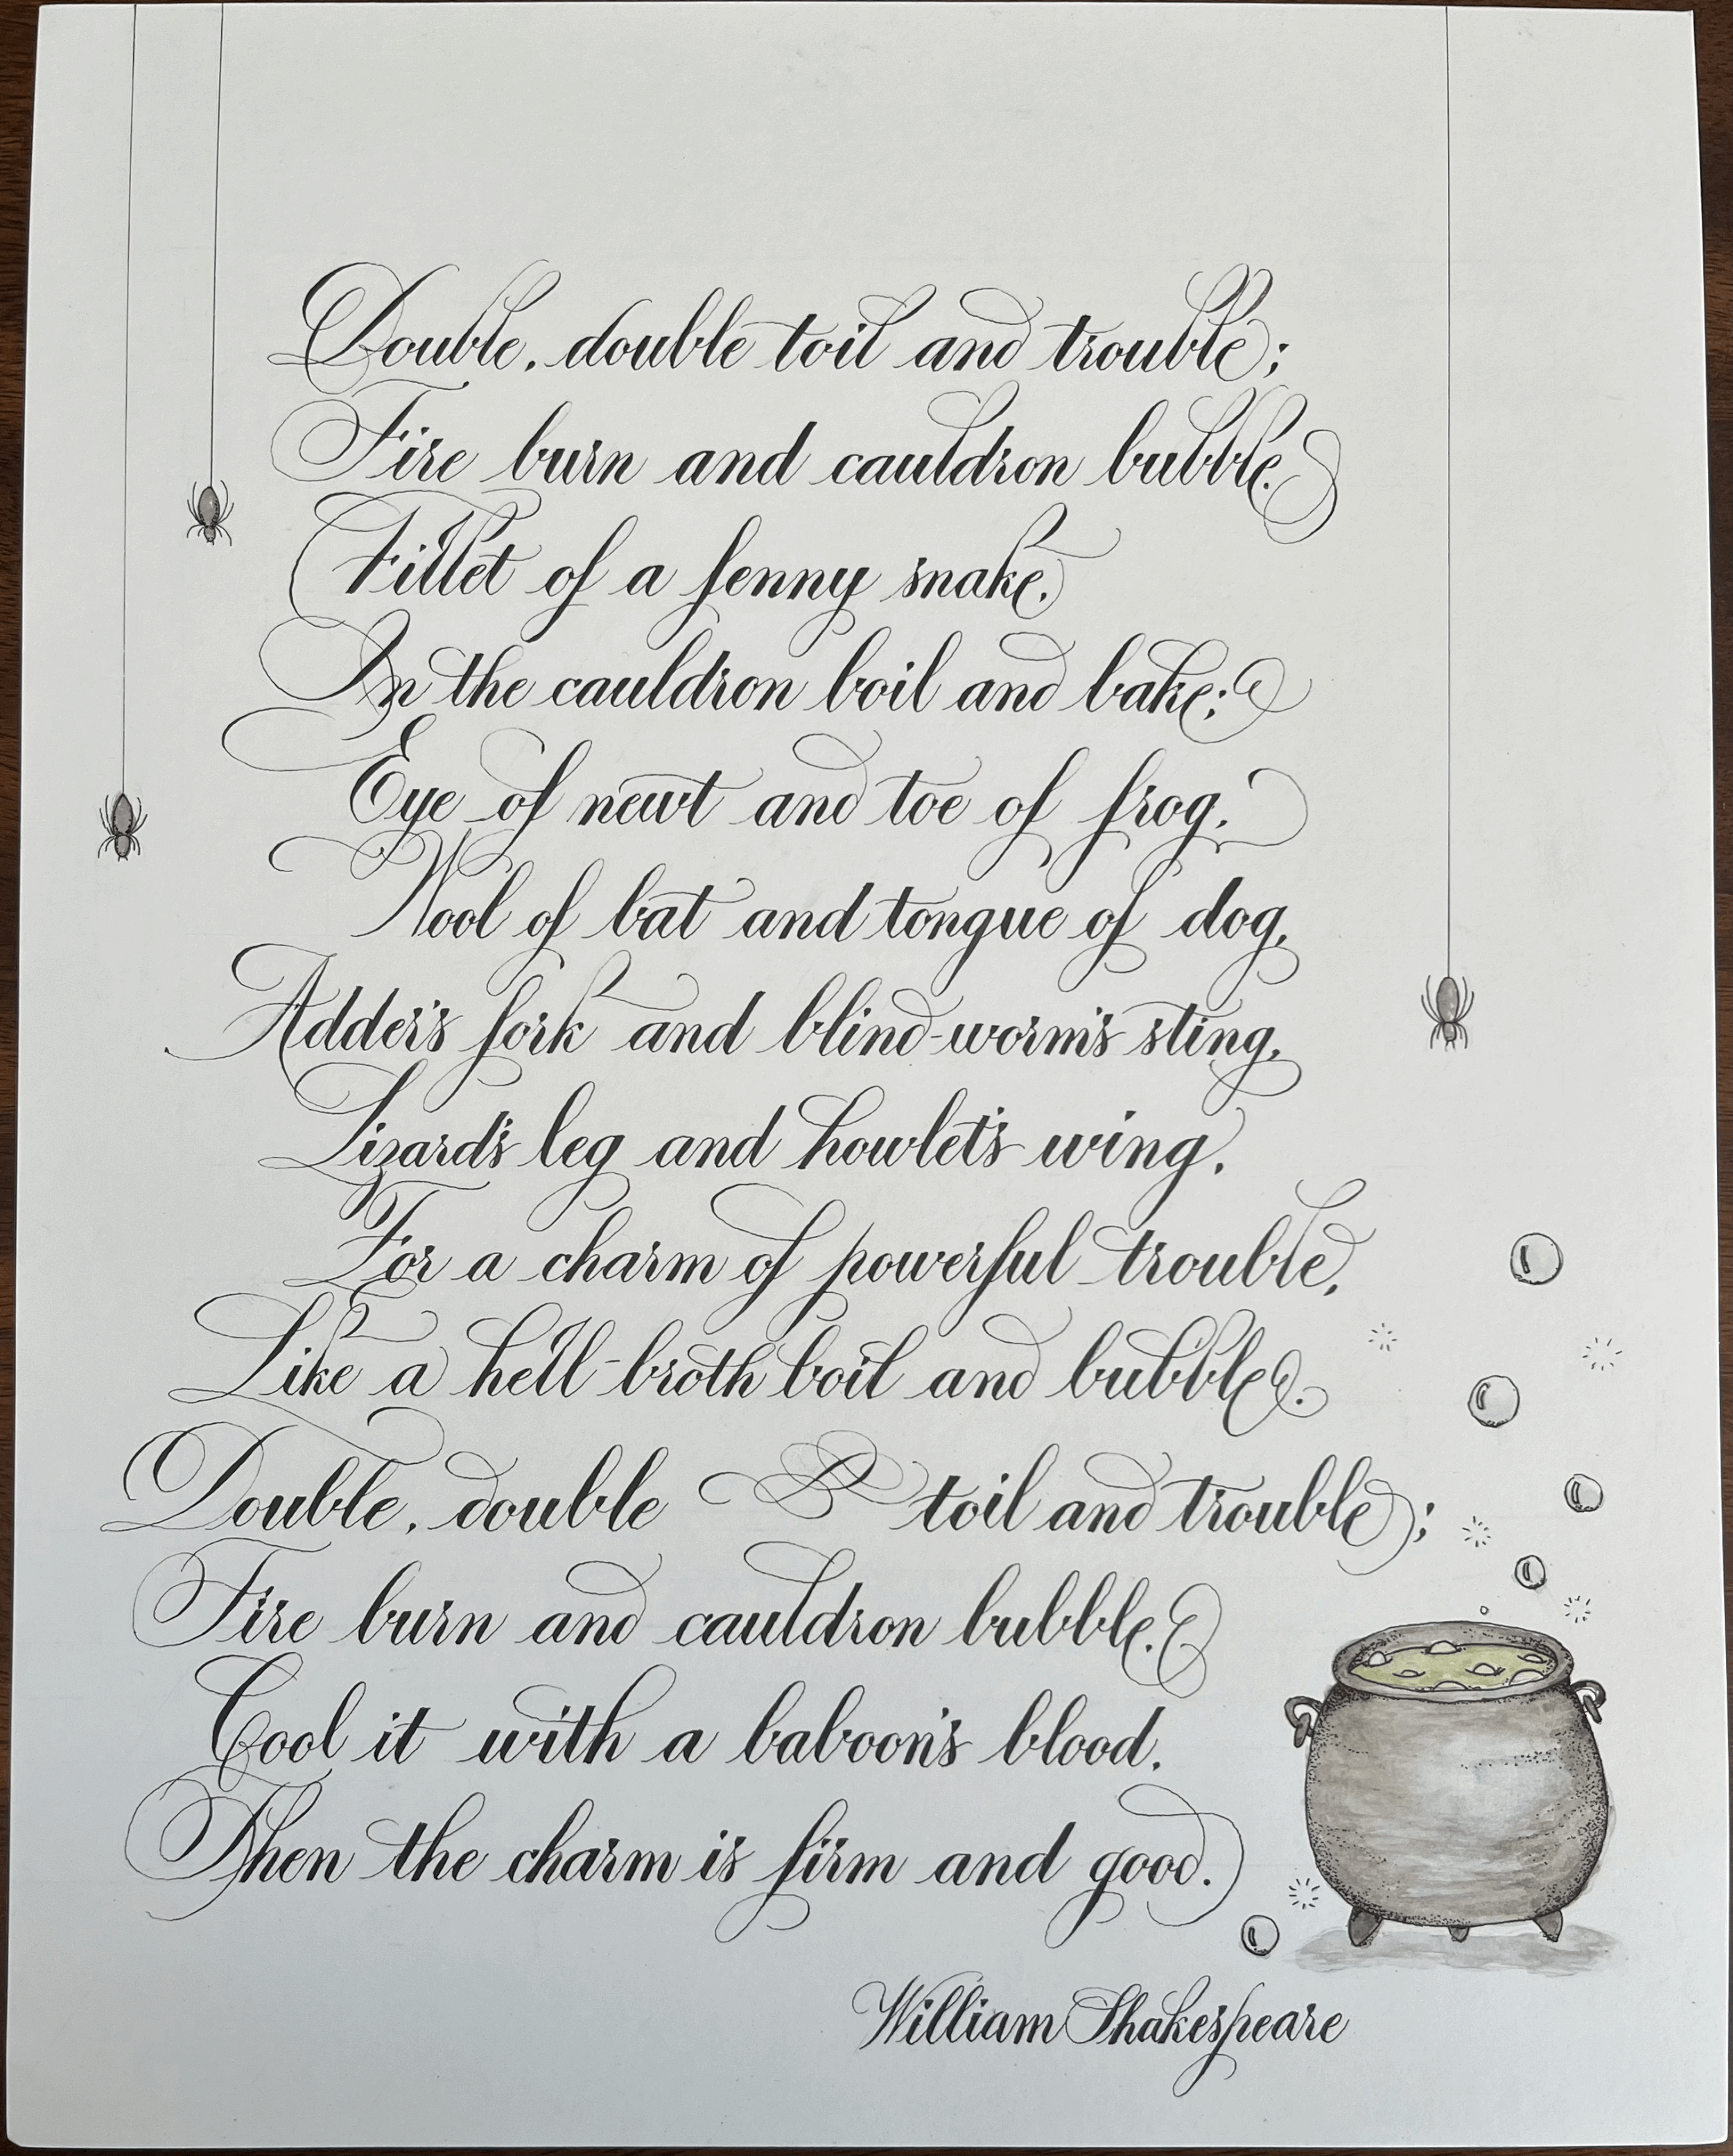 Double, double toil and trouble;
Fire burn and cauldron bubble.
Fillet of a fenny snake,
In the cauldron boil and bake;
Eye of newt and toe of frog,
Wool of bat and tongue of dog,
Adder's fork and blind-worm's sting,
Lizard's leg and howlet's wing,
For a charm of powerful trouble,
Like a hell-broth boil and bubble.
Double, double toil and trouble;
Fire burn and cauldron bubble.
Cool it with a baboon's blood,
Then the charm is firm and good.
William Shakespeare